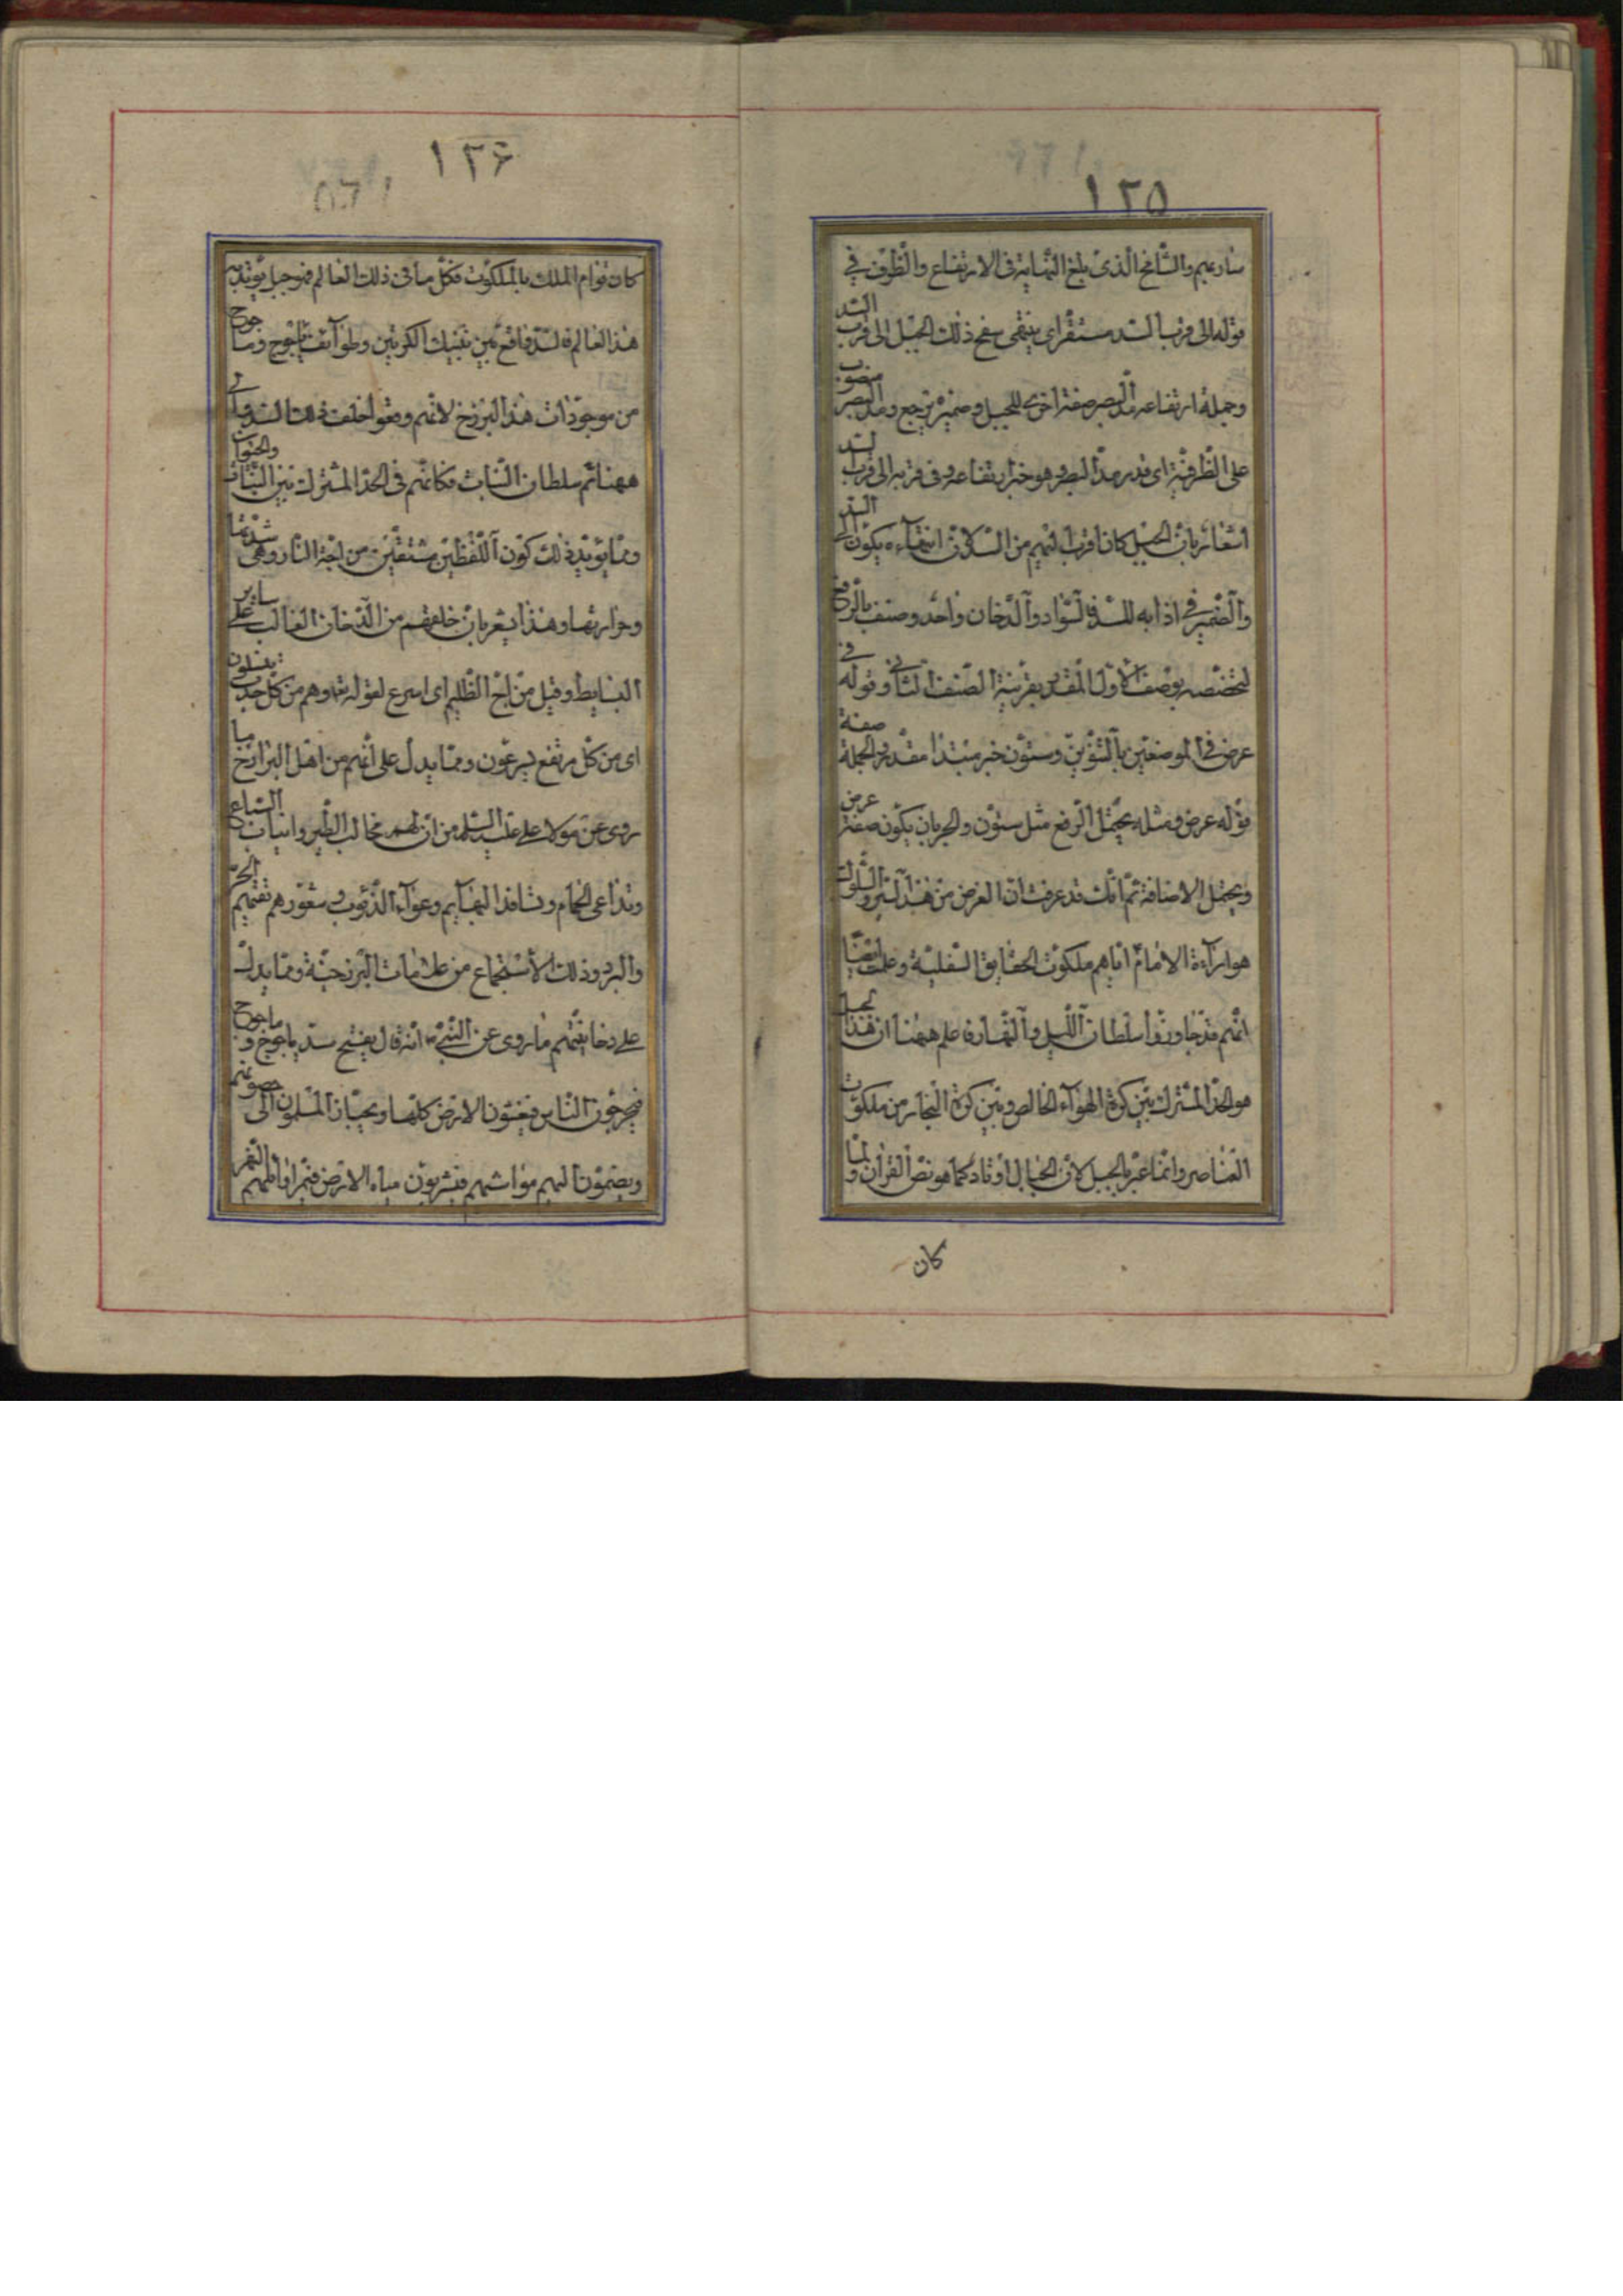 ١٢٥
سارعيم والشامخ الذى بلغ النهاية فى الارتفاع والظرف فى
قوله الى قرب السد مستقر اى ينتهى سفح ذلك الجبل الى قرب السد
وجملة ارتفاعه مد البصر صفة اخرى للجبل وضميره يرجع ومد البصر منصوب
على الظرفية اى قدر مد البصر وهو خبر ارتفاعه وفى قربه الى قرب السد
اشعار بان الجبل كان اقرب اليهم من السد لان انتهاءه يكون الى السد
والضمير فى اذا به للسد فى السواد والدخان واحد وصنف بالرفع
لتخصصه بوصف الاول المقدر بقرينة الصنف الثانى وقوله فى
عرض فى الموضعين بالتنوين وستون خبر مبتدا مقدر والجملة صفة
قوله عرض ومثله يحتمل الرفع مثل ستون والجر بان يكون صفة عرض
ويحتمل الاضافة ثم انك قد عرفت ان الغرض من هذا السير والسلوك
هو اراءة الامام اياهم ملكوت الحقايق السفلية وعلمت ايضا
انهم قد جاوزوا سلطان الليل والنهار فاعلم ههنا ان هذا الجبل
هو الحد المشترك بين كرة الهواء الخالص وبين كرة البخار من ملكوت
العناصر وانما عبر بالجبل لان الجبال اوتاد كما هو نص القران ولما
كان
١٢۶
كان قوام الملك بالملكوت فكل ما فى ذلك العالم فهو جبل يؤيد به
هذا العالم فالسد واقع بين تينك الكرتين وطوايف ياجوج وماجوج
من موجودات هذا البرزخ لانهم وقعوا خلف ذلك السد وفى
ههنا تم سلطان النبات فكانهم فى الحد المشترك بين النبات والحيوان
ومما يؤيد ذلك كون اللفظين مشتقين من اجة النار وهى شدتها
وحرارتها وهذا يشعر بان خلقهم من الدخان الغالب على ساير
البسايط وقيل من اج الظليم اى اسرع لقوله تع وهم من كل حدب ينسلون
اى من كل مرتفع يسرعون ومما يدل على انهم من اهل البرازخ ما
روى عن مولانا على عليه السلم من ان لهم مخالب الطير وانياب السباع
وتداعى الحمام وتسافد البهايم وعواء الذئب وشعورهم تقيهم الحر
والبرد وذلك الاستجماع من علامات البرزخية ومما يدل
على دخانيتهم ما روى عن النبى ص انه قال يفتح سد ياجوج وماجوج
فيخرجون الناس فيغشون الارض كلها ويحتاز المسلمون الى حصونهم
ويضمون اليهم مواشيهم فيشربون مياه الارض فيمر اوائلهم النهر